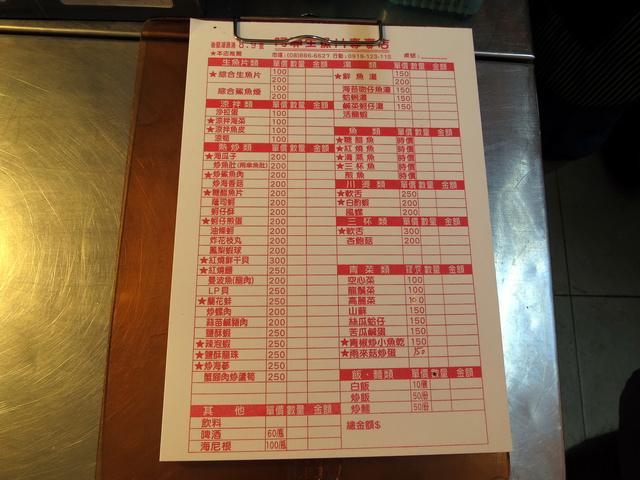 後壁湖
阿 生魚片專賣店
★本店推薦
市場:(08)886-6627 行動:0919-123-115
桌號:
生魚片類 單價 數量 金額
★綜合生魚片 100
200
綜合鯊魚煙 100
200
涼拌類 單價 數量 金額
沙拉蛋 100
★涼拌海菜 100
★涼拌魚皮 100
涼筍 100
熱炒類 單價 數量 金額
★海瓜子 200
炒魚肚(兩傘魚肚) 200
★炒鯊魚肉 200
炒海香菇 200
★糖醋魚片 200
蘿司蚵 200
蚵仔酥 200
★蚵仔煎蛋 200
油條蚵 200
炸花枝丸 200
鳳梨蝦球 200
★紅燒鮮干貝 300
★紅燒鰻 250
曼波魚(龍肉) 200
LP貝 250
★蘭花蚌 250
炒螺肉 200
蒜苗鹹豬肉 200
鹽酥蝦 250
★辣泡蝦 250
★鹽酥龍珠 250
★炒海蔘 250
蟹腳肉炒蘆筍 250
其 他 單價 數量 金額
飲料
啤酒 60/瓶
海尼根 100/瓶
湯 類 單價 數量 金額
★鮮魚湯 150
200
海苔吻仔魚湯 150
蛤蜊湯 150
鹹菜蚵仔湯 150
活龍蝦
魚 類 單價 數量 金額
★糖醋魚 時價
★紅燒魚 時價
★清蒸魚 時價
★三杯魚 時價
煎魚 時價
川燙類 單價 數量 金額
★軟舌 250
★白灼蝦 200
風螺 200
三杯類 單價 數量 金額
★軟舌 300
杏鮑菇 200
青菜類 單價 數量 金額
空心菜 100
龍鬚菜 100
高麗菜 100
山蘇 150
絲瓜蛤仔 150
苦瓜鹹蛋 150
★青椒炒小魚乾 150
★雨來菇炒蛋 150
飯、麵類 單價 數量 金額
白飯 10/碗
炒飯 50/份
炒麵 50/份
總金額$